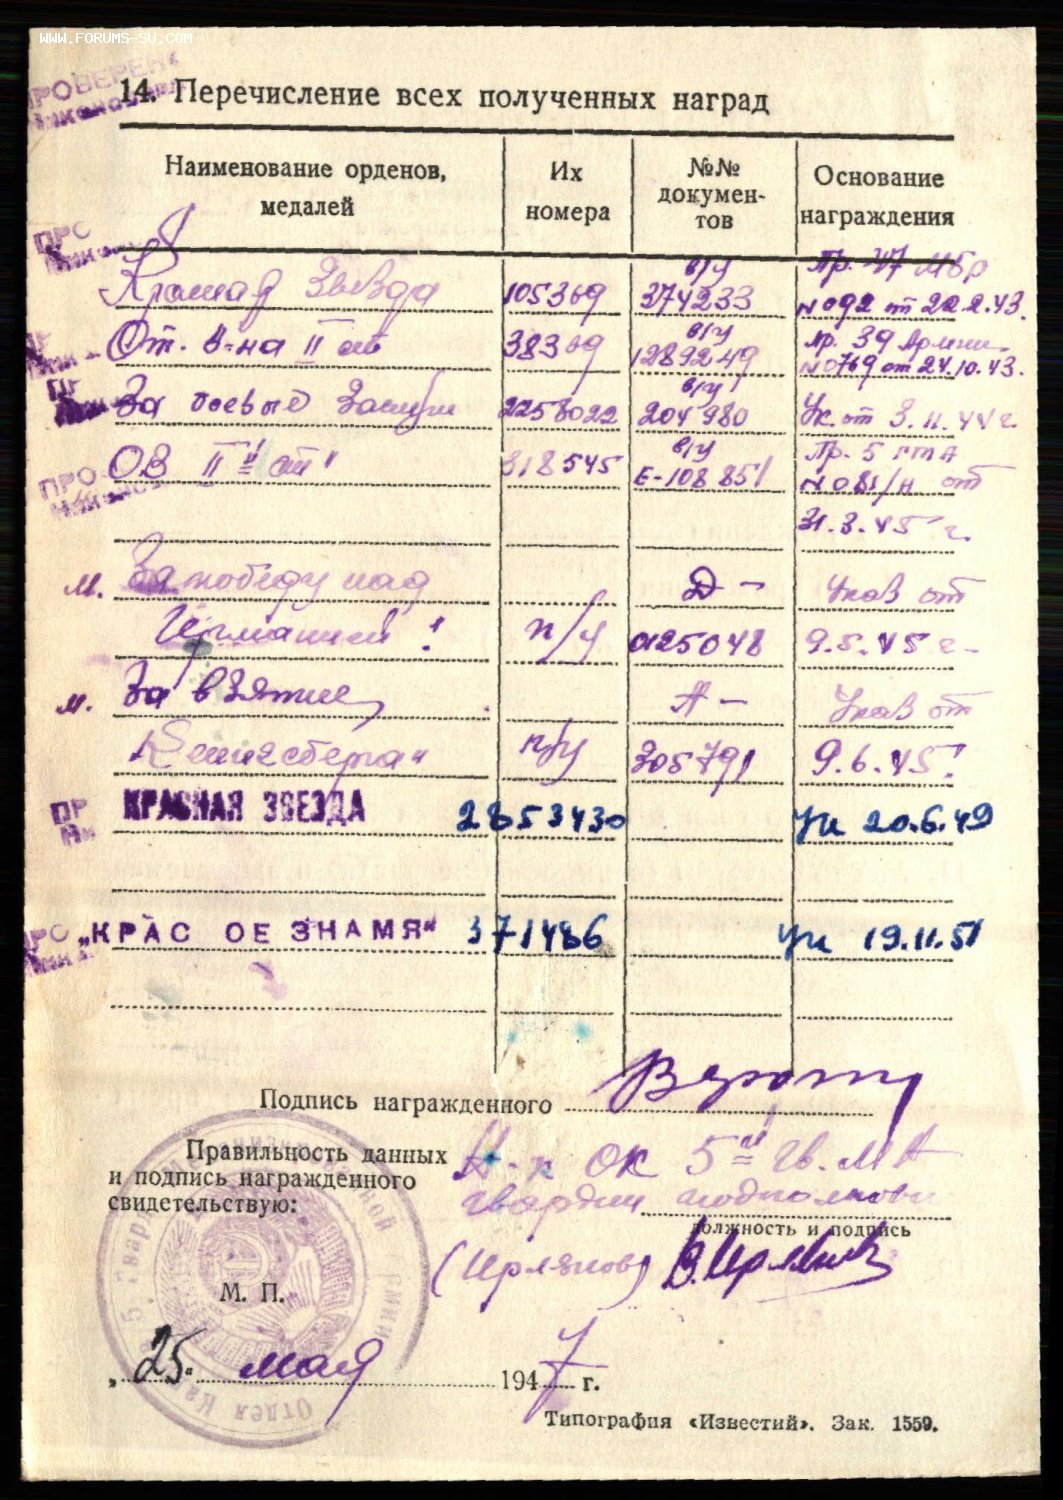 WWW.FORUMS-SU.COM
14. Перечисление всех полученных наград
Наименование орденов, медалей
Их номера
№№ документов
Основание награждения
Красная Звезда 105369 в/у 374233 Пр. 47 МБр N 092 от 22.2.43.
От. в-на II ст 38369 в/у 289249 пр. 39 Армии N 0769 от 24.10.43.
За боевые заслуги 2258022 в/у 204980 Ук. от 3.11.44 г.
ОВ II й ст 318545 в/у Е-108851 Пр. 5 гтА N 081/н от
31.3.45 г.
м. За победу над Д- Указ от
Германией" н/у 0125048 9.5.45 г.
м. За взятие А- Указ от
Кенигсберга" н/у 305791 9.6.45 г.
КРАСНАЯ ЗВЕЗДА 2853430 Ук 20.6.49
„КРАС ОЕ ЗНАМЯ" 371486 Ук 19.11.51
Подпись награжденного
Правильность данных
и подпись награжденного
свидетельствую:
Н-к ОК 5й гв. МА
гвардии подполковн
должность и подпись
(Ирлянов)
М. П.
„25" мая 1947 г.
Типография «Известий». Зак. 1559.